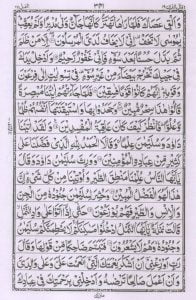 وَاَلْقِ عَصَاكَ فَلَمَّا رَاٰهَا تَهْتَزُّ كَاَنَّهَا جَآنٌّ وَّلّٰى مُدْبِرًا وَّلَمْ يُعَقِّبْ
يٰمُوْسٰى لَا تَخَفْ اِنِّىْ لَا يَخَافُ لَدَىَّ الْمُرْسَلُوْنَ اِلَّا مَنْ ظَلَمَ
ثُمَّ بَدَّلَ حُسْنًۢا بَعْدَ سُوْٓءٍ فَاِنِّىْ غَفُوْرٌ رَّحِيْمٌ وَاَدْخِلْ يَدَكَ فِىْ
جَيْبِكَ تَخْرُجْ بَيْضَآءَ مِنْ غَيْرِ سُوْٓءٍ فِىْ تِسْعِ اٰيٰتٍ اِلٰى فِرْعَوْنَ
وَقَوْمِهٖ اِنَّهُمْ كَانُوْا قَوْمًا فٰسِقِيْنَ فَلَمَّا جَآءَتْهُمْ اٰيٰتُنَا مُبْصِرَةً
قَالُوْا هٰذَا سِحْرٌ مُّبِيْنٌ وَجَحَدُوْا بِهَا وَاسْتَيْقَنَتْهَآ اَنْفُسُهُمْ ظُلْمًا
وَّعُلُوًّا فَانْظُرْ كَيْفَ كَانَ عَاقِبَةُ الْمُفْسِدِيْنَ وَلَقَدْ اٰتَيْنَا
دَاوٗدَ وَسُلَيْمٰنَ عِلْمًا وَقَالَا الْحَمْدُ لِلّٰهِ الَّذِىْ فَضَّلَنَا عَلٰى
كَثِيْرٍ مِّنْ عِبَادِهِ الْمُؤْمِنِيْنَ وَوَرِثَ سُلَيْمٰنُ دَاوٗدَ وَقَالَ
يٰٓاَيُّهَا النَّاسُ عُلِّمْنَا مَنْطِقَ الطَّيْرِ وَاُوْتِيْنَا مِنْ كُلِّ شَىْءٍ اِنَّ
هٰذَا لَهُوَ الْفَضْلُ الْمُبِيْنُ وَحُشِرَ لِسُلَيْمٰنَ جُنُوْدُهٗ مِنَ الْجِنِّ
وَالْاِنْسِ وَالطَّيْرِ فَهُمْ يُوْزَعُوْنَ حَتّٰٓى اِذَآ اَتَوْا عَلٰى وَادِ النَّمْلِ
قَالَتْ نَمْلَةٌ يّٰٓاَيُّهَا النَّمْلُ ادْخُلُوْا مَسٰكِنَكُمْ لَا يَحْطِمَنَّكُمْ سُلَيْمٰنُ
وَجُنُوْدُهٗ وَهُمْ لَا يَشْعُرُوْنَ فَتَبَسَّمَ ضَاحِكًا مِّنْ قَوْلِهَا وَقَالَ
رَبِّ اَوْزِعْنِىْٓ اَنْ اَشْكُرَ نِعْمَتَكَ الَّتِىْٓ اَنْعَمْتَ عَلَىَّ وَعَلٰى وَالِدَىَّ
وَاَنْ اَعْمَلَ صَالِحًا تَرْضٰىهُ وَاَدْخِلْنِىْ بِرَحْمَتِكَ فِىْ عِبَادِكَ